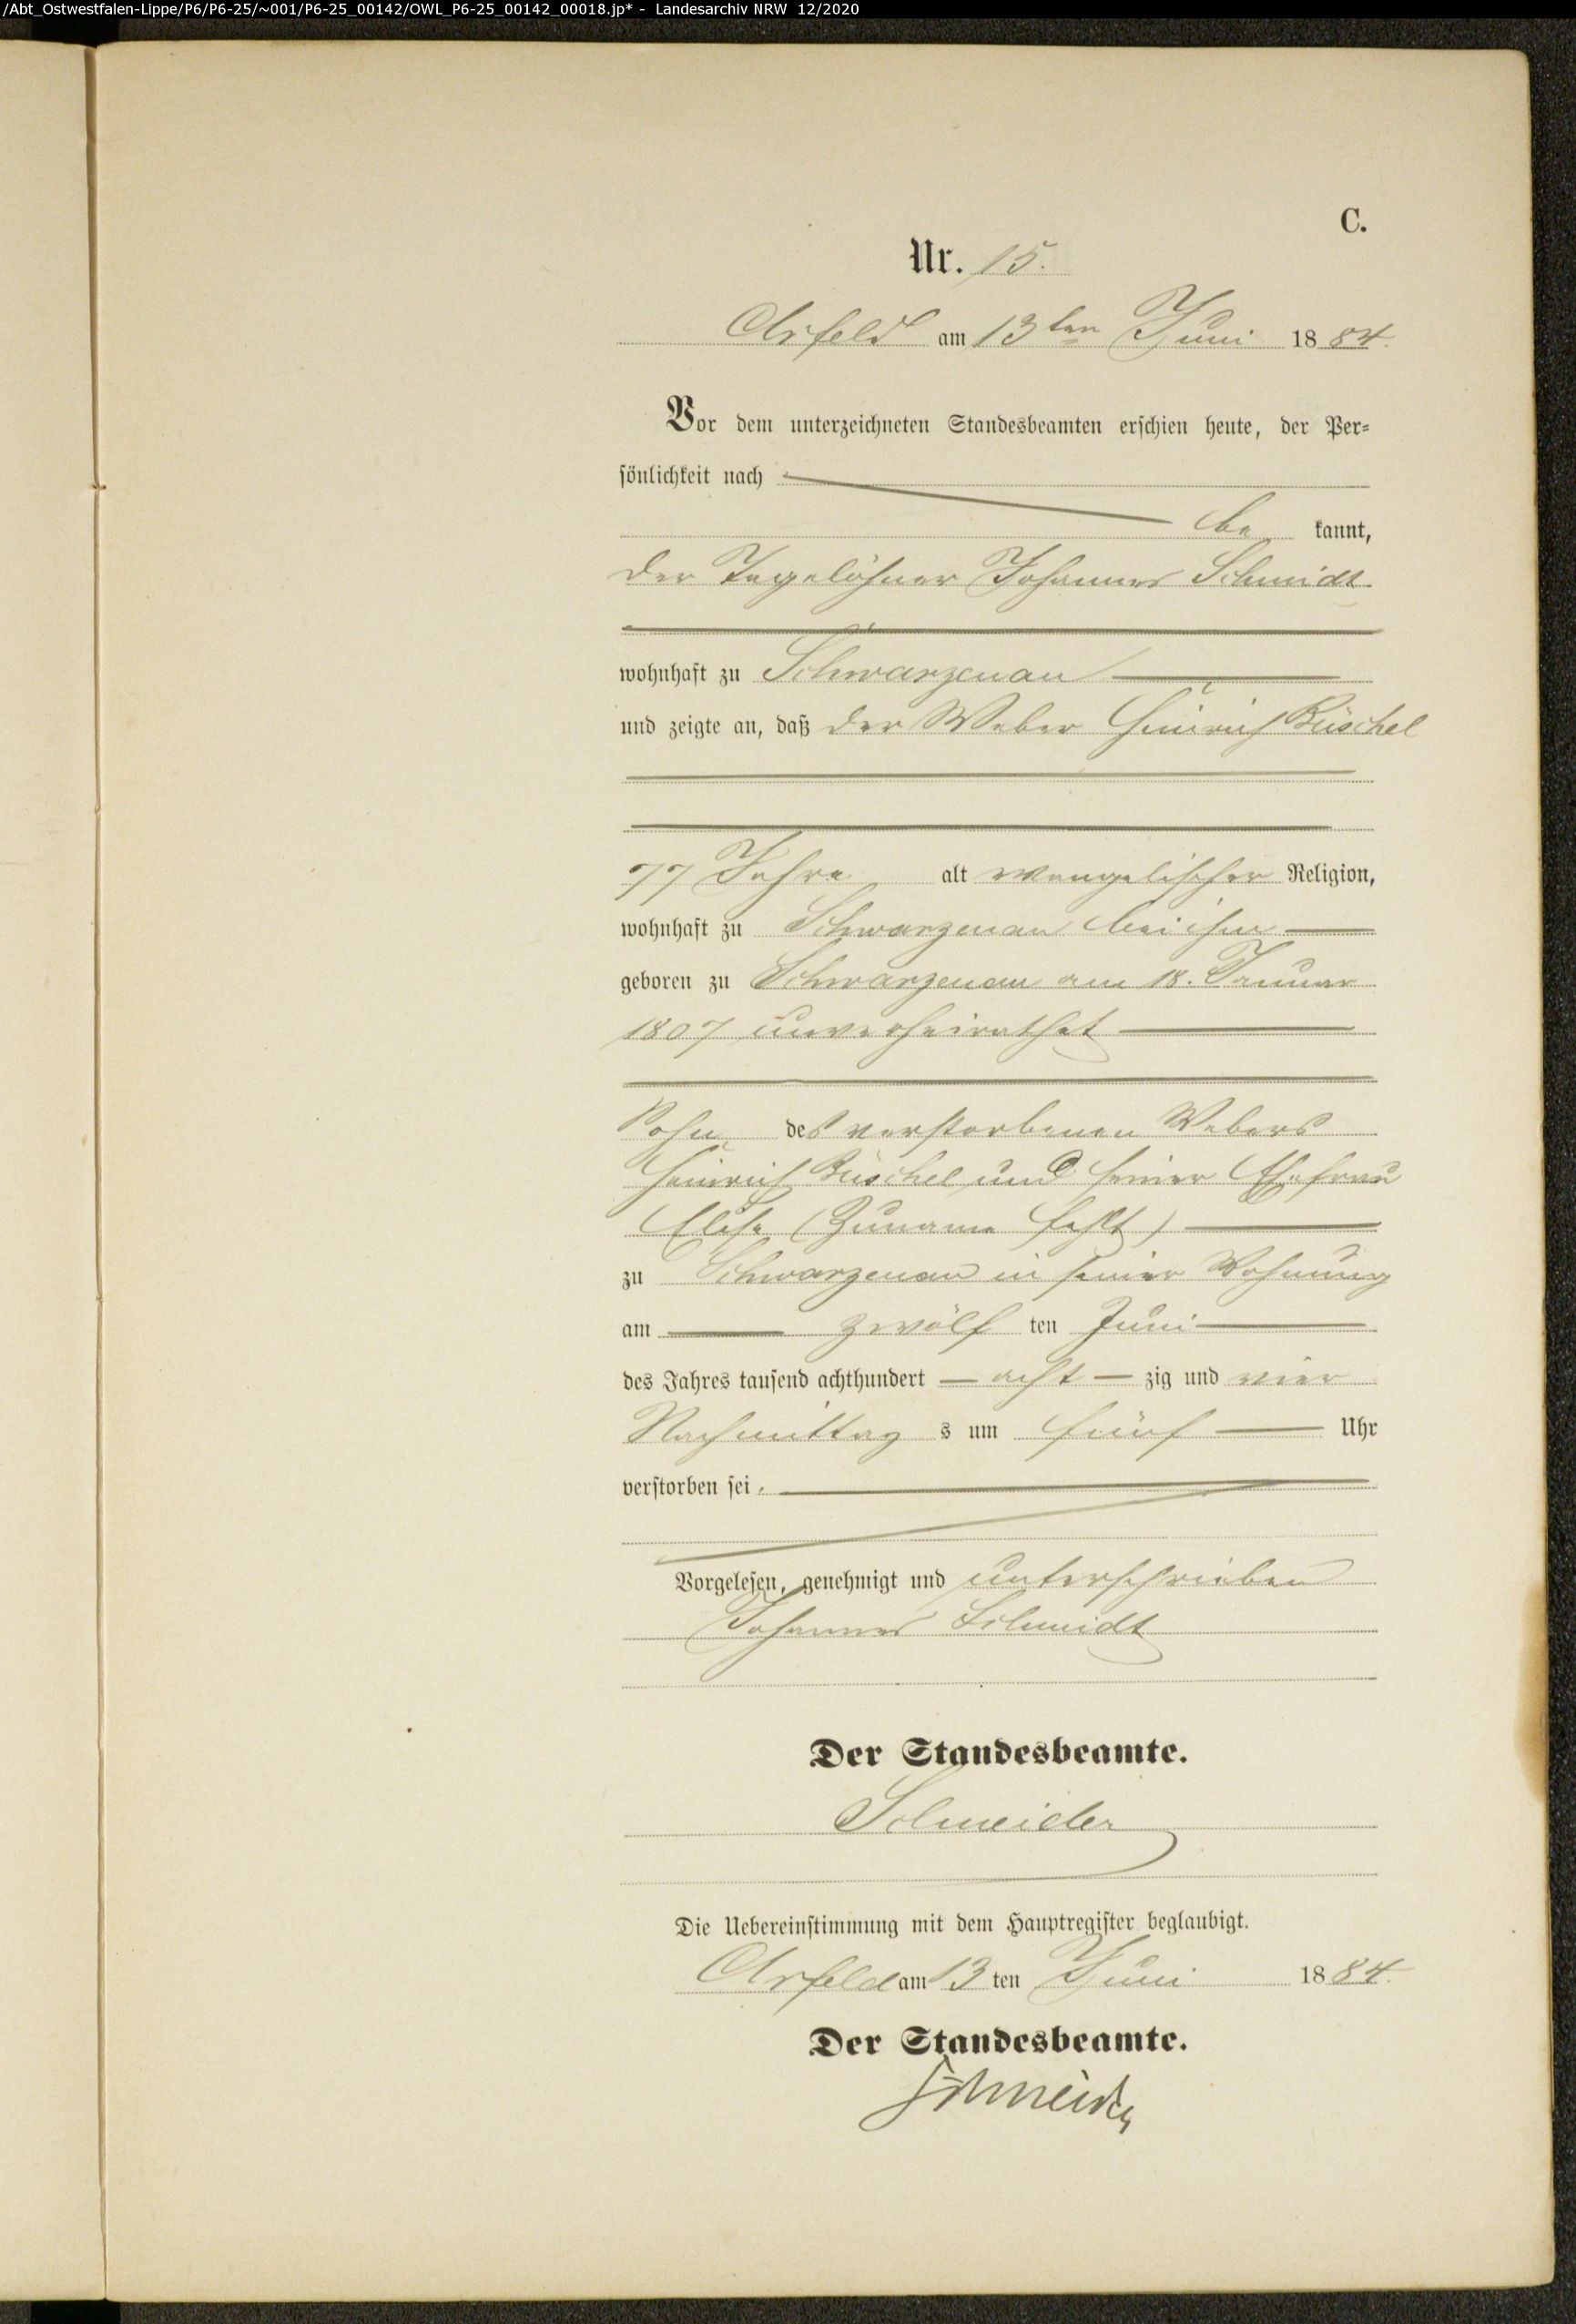 /Abt_Ostwestfalen-Lippe/P6/P6-25/~001/P6-25_00142/OWL_P6-25_00142_00018.jp* - Landesarchiv NRW 12/2020
C.
Nr. 15.
Arfeld am 13ten Juni 1884.
Vor dem unterzeichneten Standesbeamten erschien heute, der Per-
sönlichkeit nach
be kannt,
der Tagelöhner Johannes Schmidt
wohnhaft zu Schwarzenau
und zeigte an, daß der Weber Heinrich Büschel
77 Jahre alt evangelischer Religion,
wohnhaft zu Schwarzenau bei ihm
geboren zu Schwarzenau am 18. Januar
1807 unverheirathet
Sohn des verstorbenen Webers
Heinrich Büschel und seiner Ehefrau
Elise (Zuname fehlt)
zu Schwarzenau in seiner Wohnung
am zwölf ten Juni
des Jahres tausend achthundert acht zig und vier
Nachmittag s um fünf Uhr
verstorben sei.
Vorgelesen, genehmigt und unterschrieben
Johannes Schmidt
Der Standesbeamte.
Schneider
Die Uebereinstimmung mit dem Hauptregister beglaubigt.
Arfeld am 13 ten Juni 1884.
Der Standesbeamte.
Schneider